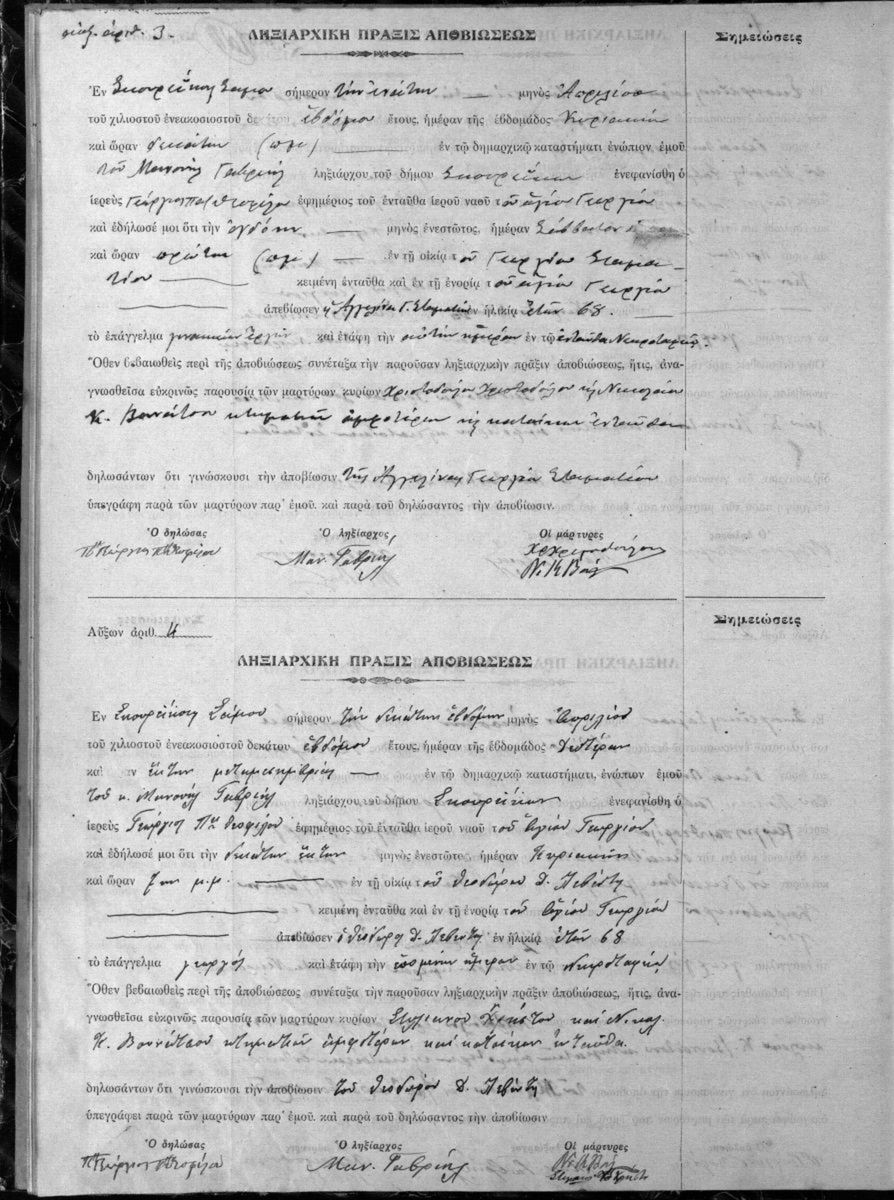 αὐξ. ἀριθ. 3.
ΛΗΞΙΑΡΧΙΚΗ ΠΡΑΞΙΣ ΑΠΟΒΙΩΣΕΩΣ
Σημειώσεις
Ἐν Σκουρέικα Σάμου σήμερον τὴν ἐνάτην μηνὸς Ἀπριλίου
τοῦ χιλιοστοῦ ἐνεακοσιοστοῦ δεκάτου ἑβδόμου ἔτους, ἡμέραν τῆς ἑβδομάδος Κυριακὴν
καὶ ὥραν δεκάτην (πμ) ἐν τῷ δημαρχικῷ καταστήματι ἐνώπιον ἐμοῦ
τοῦ Μανουὴλ Γαβριὴλ ληξιάρχου τοῦ δήμου Σκουρέικων ἐνεφανίσθη ὁ
ἱερεὺς Γεώργιος ἐφημέριος τοῦ ἐνταῦθα ἱεροῦ ναοῦ τοῦ ἁγίου Γεωργίου
καὶ ἐδήλωσέ μοι ὅτι τὴν ὀγδόην μηνὸς ἐνεστῶτος, ἡμέραν Σάββατον
καὶ ὥραν πρώτην (πμ) ἐν τῇ οἰκίᾳ τοῦ Γεωργίου Σταμα-
τίου κειμένῃ ἐνταῦθα καὶ ἐν τῇ ἐνορίᾳ τοῦ ἁγίου Γεωργίου
ἀπεβίωσεν ἡ Ἀγγελίνα Γ. Σταματίου ἐν ἡλικίᾳ ἐτῶν 68.
τὸ ἐπάγγελμα γυναικείων ἔργων καὶ ἐτάφη τὴν αὐτὴν ἡμέραν ἐν τῷ ἐνταῦθα Νεκροταφείῳ
Ὅθεν βεβαιωθεὶς περὶ τῆς ἀποβιώσεως συνέταξα τὴν παροῦσαν ληξιαρχικὴν πρᾶξιν ἀποβιώσεως, ἥτις, ἀνα-
γνωσθεῖσα εὐκρινῶς παρουσίᾳ τῶν μαρτύρων κυρίων Χριστοδούλου κὴ Νικολάου
Κ. Βουνάτσου κτηματιῶν ἀμφοτέρων κὴ κατοίκων ἐνταῦθα
δηλωσάντων ὅτι γινώσκουσι τὴν ἀποβίωσιν τῆς Ἀγγελίνας Γεωργίου Σταματίου
ὑπεγράφη παρὰ τῶν μαρτύρων παρ' ἐμοῦ. καὶ παρὰ τοῦ δηλώσαντος τὴν ἀποβίωσιν.
Ὁ δηλώσας Ὁ ληξίαρχος Οἱ μάρτυρες
Μαν. Γαβριήλ
Αὔξων ἀριθ. 4
Σημειώσεις
ΛΗΞΙΑΡΧΙΚΗ ΠΡΑΞΙΣ ΑΠΟΒΙΩΣΕΩΣ
Ἐν Σκουρέικοις Σάμου σήμερον τὴν δεκάτην ἑβδόμην μηνὸς Ἀπριλίου
τοῦ χιλιοστοῦ ἐνεακοσιοστοῦ δεκάτου ἑβδόμου ἔτους, ἡμέραν τῆς ἑβδομάδος Δευτέραν
καὶ ἕκτην μεταμεσημβρίαν ἐν τῷ δημαρχικῷ καταστήματι, ἐνώπιον ἐμοῦ
τοῦ κ. Μανουὴλ Γαβριὴλ ληξιάρχου τοῦ δήμου Σκουρέικων ἐνεφανίσθη ὁ
ἱερεὺς Γεώργιος ἐφημέριος τοῦ ἐνταῦθα ἱεροῦ ναοῦ τοῦ Ἁγίου Γεωργίου
καὶ ἐδήλωσέ μοι ὅτι τὴν δεκάτην ἕκτην μηνὸς ἐνεστῶτος, ἡμέραν Κυριακὴν
καὶ ὥραν 7ην μ.μ. ἐν τῇ οἰκίᾳ τοῦ Θεοδώρου Δ.
κειμένῃ ἐνταῦθα καὶ ἐν τῇ ἐνορίᾳ τοῦ Ἁγίου Γεωργίου
ἀπεβίωσεν ὁ Θεόδωρος Δ. ἐν ἡλικίᾳ ἐτῶν 68
τὸ ἐπάγγελμα γεωργὸς καὶ ἐτάφη τὴν ἑπομένην ἡμέραν ἐν τῷ Νεκροταφείῳ
Ὅθεν βεβαιωθεὶς περὶ τῆς ἀποβιώσεως συνέταξα τὴν παροῦσαν ληξιαρχικὴν πρᾶξιν ἀποβιώσεως, ἥτις, ἀνα-
γνωσθεῖσα εὐκρινῶς παρουσίᾳ τῶν μαρτύρων κυρίων Στυλιανοῦ Χρήστου καὶ Νικολ.
Κ. Βουνάτσου κτηματιῶν ἀμφοτέρων καὶ κατοίκων ἐνταῦθα.
δηλωσάντων ὅτι γινώσκουσι τὴν ἀποβίωσιν τοῦ Θεοδώρου Δ.
ὑπεγράφει παρὰ τῶν μαρτύρων παρ' ἐμοῦ. καὶ παρὰ τοῦ δηλώσαντος τὴν ἀποβίωσιν
Ὁ δηλώσας Ὁ ληξίαρχος Οἱ μάρτυρες
Μαν. Γαβριήλ